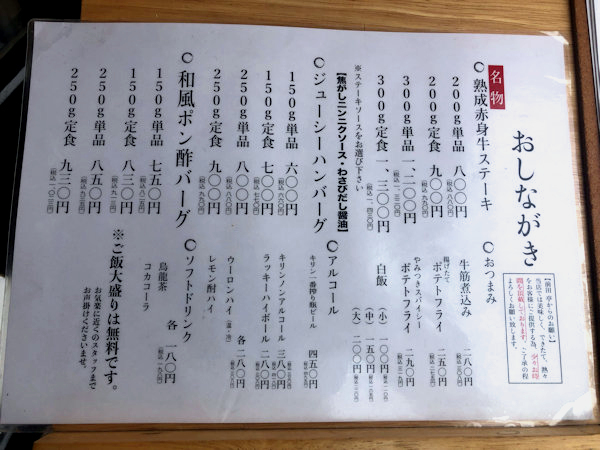 おしながき
【前田亭からのお願い】
当店では美味しく、できたて、熱々
をお客様にご提供する為、少々お時
間を頂戴しております。ご了承の程
よろしくお願い致します。
名物
熟成赤身牛ステーキ
200g単品 八〇〇円
(税込 八八〇円)
200g定食 九〇〇円
(税込 九九〇円)
300g単品 一、二〇〇円
(税込 一、三二〇円)
300g定食 一、三〇〇円
(税込 一、四三〇円)
※ステーキソースをお選び下さい
【焦がしニンニクソース・わさびだし醤油】
ジューシーハンバーグ
150g単品 六〇〇円
(税込 六六〇円)
150g定食 七〇〇円
(税込 七七〇円)
250g単品 八〇〇円
(税込 八八〇円)
250g定食 九〇〇円
(税込 九九〇円)
和風ポン酢バーグ
150g単品 七五〇円
150g定食 八三〇円
(税込 九一三円)
250g単品 八五〇円
(税込 九三五円)
250g定食 九三〇円
(税込 一、〇二三円)
おつまみ
牛筋煮込み 二八〇円
(税込 三〇八円)
揚げたて
ポテトフライ 二五〇円
(税込 二七五円)
やみつきスパイシー
ポテトフライ 二九〇円
(税込 三一九円)
白飯 (小) 一〇〇円
(税込 一一〇円)
(中) 一五〇円
(税込 一六五円)
(大) 二〇〇円
(税込 二二〇円)
アルコール
キリン一番搾り瓶ビール 四五〇円
(税込 四九五円)
キリンノンアルコール 三八〇円
(税込 四一八円)
ラッキーハイボール 二八〇円
(税込 三〇八円)
ウーロンハイ(温・冷) 各 二八〇円
レモン酎ハイ (税込 三〇八円)
ソフトドリンク
各 一八〇円
(税込 一九八円)
烏龍茶
コカコーラ
※ご飯大盛りは無料です。
お気楽に近くのスタッフまで
お声掛けくださいませ。